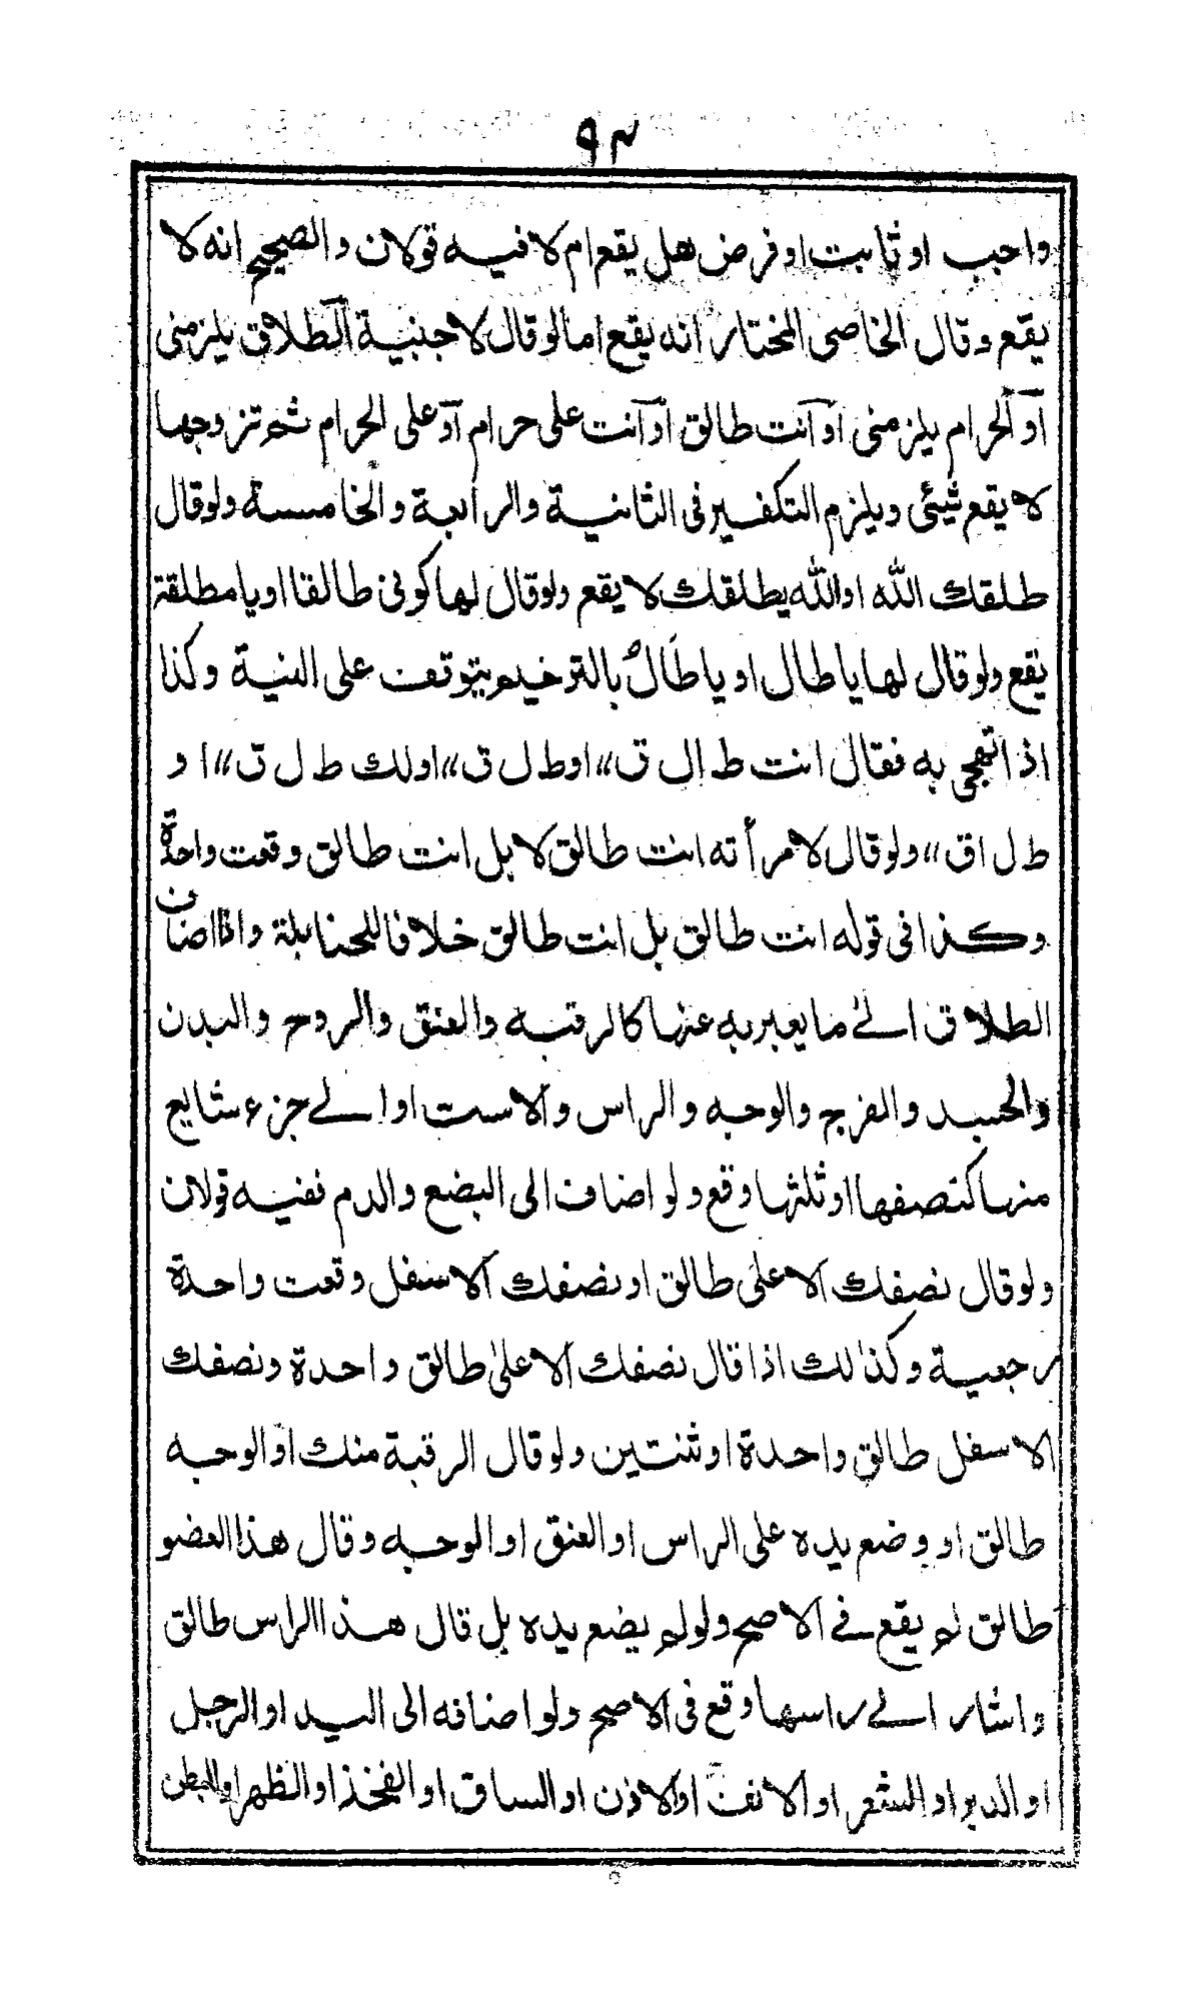 ٩٣
واجب او ثابت او فرض هل يقع ام لا فيه قولان والصحيح انه لا
يقع وقال الخاصى المختار انه يقع اما لو قال لاجنبية الطلاق يلزمنى
او الحرام يلزمنى او انت طالق او انت على حرام او على الحرام ثم تزوجها
لا يقع شيئى ويلزم التكفير فى الثانية والرابعة والخامسة ولو قال
طلقك الله او الله يطلقك لا يقع ولو قال لها كونى طالقا او يا مطلقة
يقع ولو قال لها يا طال او يا طَالُ بالترخيم يتوقف على النية وكذا
اذا تهجى به فقال انت ط ال ق،، او ط ل ق،، او لك ط ل ق،، او
ط ل اق،، ولو قال لامرأته انت طالق لا بل انت طالق وقعت واحدة
وكذا فى قوله انت طالق بل انت طالق خلافا للحنابلة واذا اضاف
الطلاق الے ما يعبر به عنها كالرقبه والعنق والروح والبدن
والجسد والفرج والوجه والراس والاست او الے جزء شايع
منها كنصفها او ثلثها وقع ولو اضاف الى البضع والدم ففيه قولان
ولو قال نصفك الاعلىٰ طالق او نصفك الاسفل وقعت واحدة
رجعية وكذالك اذا قال نصفك الاعلىٰ طالق واحدة ونصفك
الاسفل طالق واحدة او ثنتين ولو قال الرقبة منك او الوجه
طالق او وضع يده على الراس او العنق او الوجه وقال هذا العضو
طالق لم يقع فے الاصح ولو لم يضع يده بل قال هذا الراس طالق
واشار الے راسها وقع فى الاصح ولو اضافه الى اليد او الرجل
او الدبر او الشعر او الانف او الاذن او الساق او الفخذ او الظهر او البطن